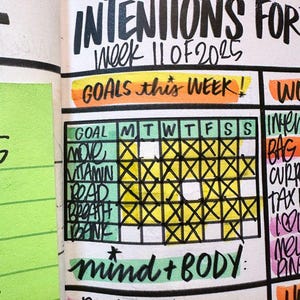 INTENTIONS FOR
Week 11 OF 2025
GOALS this WEEK!
GOAL M T W T F S S
MOVE
VITAMIN
READ
BREATH
mind + BODY:
BAG
TAX